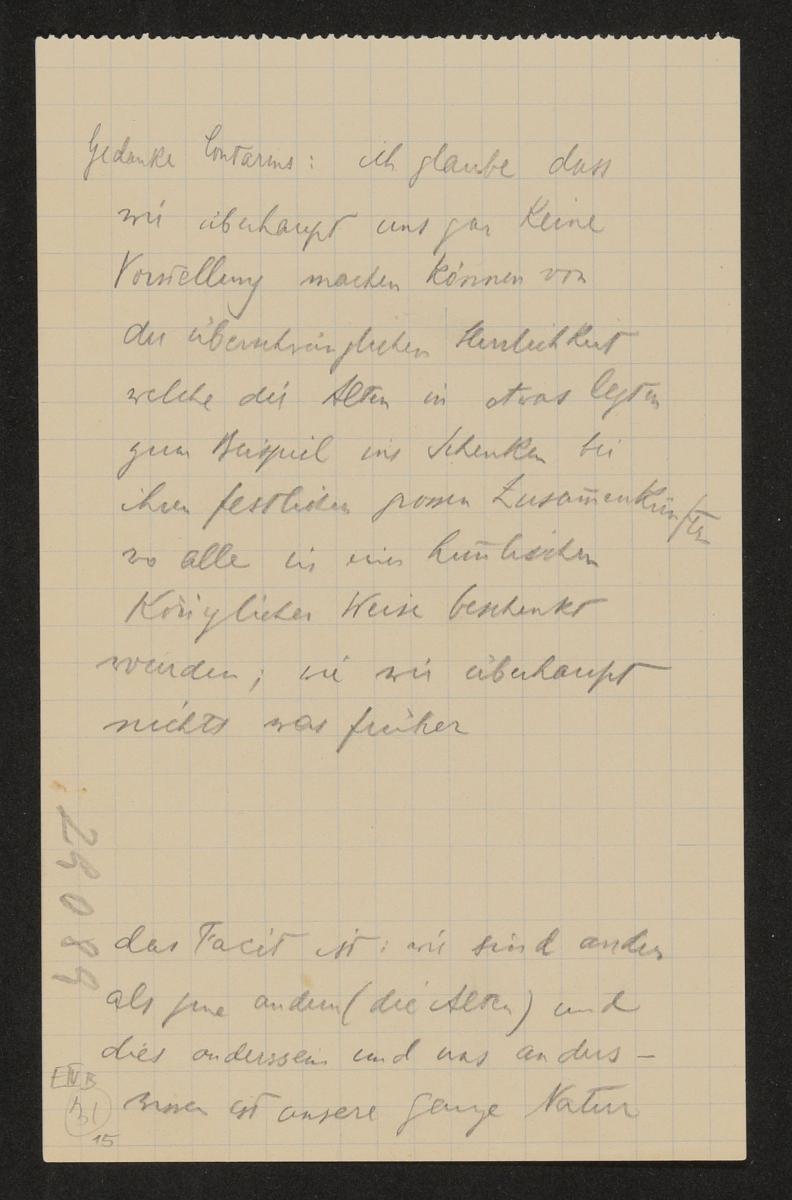 Gedanke Contarins: ich glaube dass
wir überhaupt uns gar keine
Vorstellung machen können von
der überschwänglichen Herrlichkeit
welche die Alten in etwas legten
zum Beispiel ins Schenken bei
ihren festlichen grossen Zusam̄enkünften
wo alle in einer
Königlicher Weise beschenkt
wurden; wie wir überhaupt
nichts was früher
das Facit ist: wir sind anders
als jene andern (die Alten) und
dies anderssein und uns anders-
wissen ist unsere ganze Natur
29089
EIVB
31
15